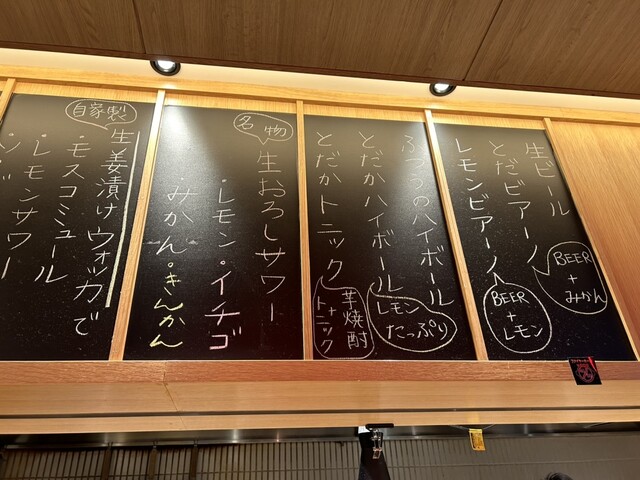 生ビール
とだビアーノ
BEER
+
みかん
レモンビアーノ
BEER
+
レモン
ふつうのハイボール
とだかハイボール
レモン
たっぷり
とだかトニック
芋焼酎
+
トニック
名物
生おろしサワー
・レモン・イチゴ
・みかん・きんかん
自家製
生姜漬けウォッカで
・モスコミュール
・レモンサワー